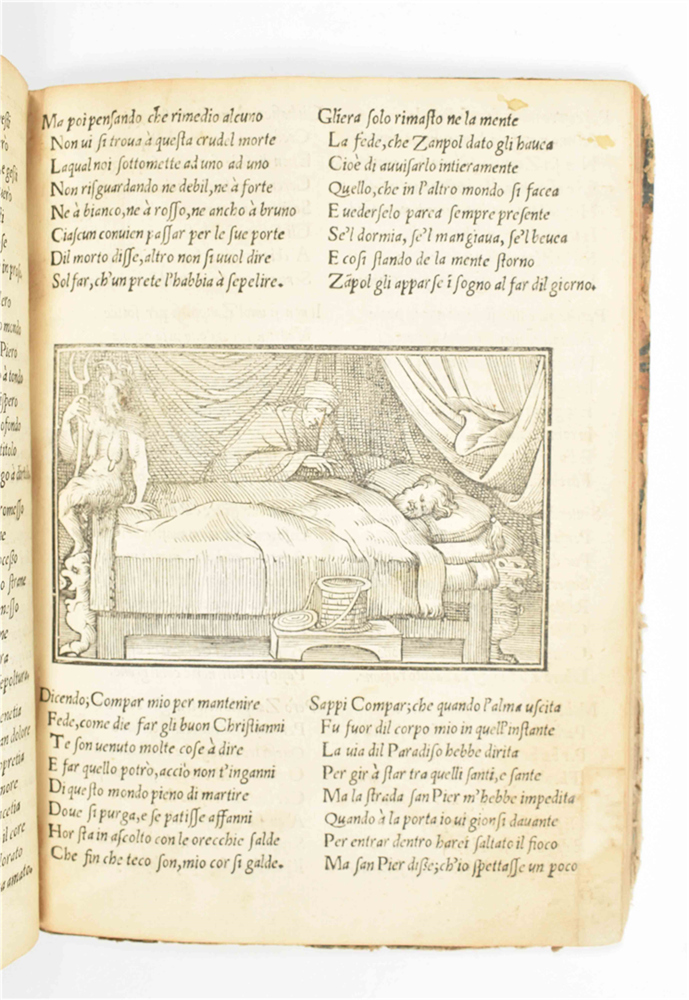 Ma poi pensando che rimedio alcuno
Non ui si troua à questa crudel morte
Laqual noi sottomette ad uno ad uno
Non risguardando ne debil, ne à forte
Ne à bianco, ne à rosso, ne ancho à bruno
Ciascun conuien passar per le sue porte
Dil morto disse, altro non si uuol dire
Sol far, ch'un prete l'habbia à sepelire.
Gliera solo rimasto ne la mente
La fede, che Zanpol dato gli hauea
Cioè di auuisarlo intieramente
Quello, che in l'altro mondo si facea
E uederselo parea sempre presente
Se'l dormia, se'l mangiaua, se'l beuea
E cosi stando de la mente storno
Zãpol gli apparse ĩ sogno al far dil giorno.
Dicendo; Compar mio per mantenire
Fede, come die far gli buon Christianni
Te son uenuto molte cose à dire
E far quello potrò, acciò non t'inganni
Di questo mondo pieno di martire
Doue si purga, e se patisse affanni
Hor sta in ascolto con le orecchie salde
Che fin che teco son, mio cor si galde.
Sappi Compar; che quando l'alma uscita
Fu fuor dil corpo mio in quell'instante
La uia dil Paradiso hebbe dirita
Per gir à star tra quelli santi, e sante
Ma la strada san Pier m'hebbe impedita
Quando à la porta io ui gionsi dauante
Per entrar dentro harei saltato il fioco
Ma san Pier disse; ch'io spettasse un poco